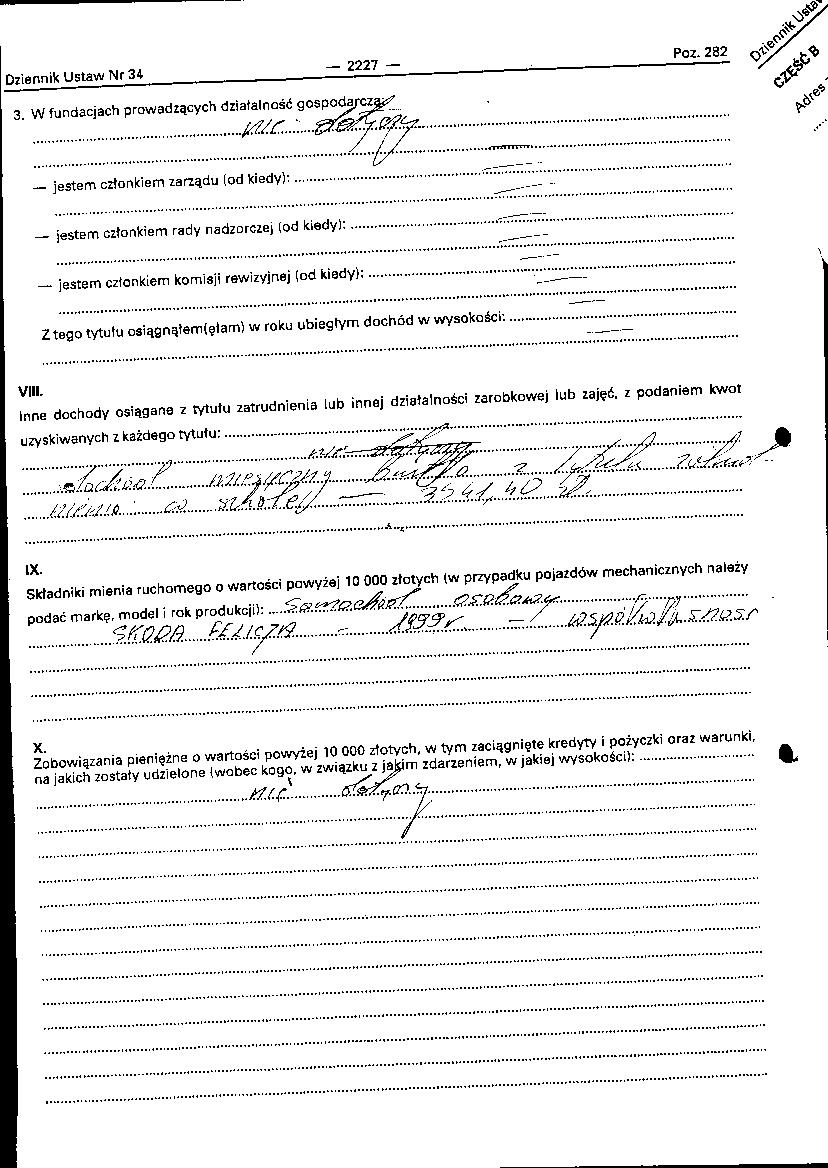 Dziennik Ustaw Nr 34 — 2227 — Poz. 282
Dziennik Ustaw
CZĘŚĆ B
Adres
3. W fundacjach prowadzących działalność gospodarczą:
nie dotyczy
— jestem członkiem zarządu (od kiedy):
— jestem członkiem rady nadzorczej (od kiedy):
— jestem członkiem komisji rewizyjnej (od kiedy):
Z tego tytułu osiągnąłem(ęłam) w roku ubiegłym dochód w wysokości:
VIII.
Inne dochody osiągane z tytułu zatrudnienia lub innej działalności zarobkowej lub zajęć, z podaniem kwot
uzyskiwanych z każdego tytułu:
nie dotyczy
dochód miesięczny brutto z tytułu zatrud-
nienia w szkole — 3541,40 zł.
IX.
Składniki mienia ruchomego o wartości powyżej 10 000 złotych (w przypadku pojazdów mechanicznych należy
podać markę, model i rok produkcji): Samochód osobowy
SKODA FELICZIA - 1999r - współwłasność
X.
Zobowiązania pieniężne o wartości powyżej 10 000 złotych, w tym zaciągnięte kredyty i pożyczki oraz warunki,
na jakich zostały udzielone (wobec kogo, w związku z jakim zdarzeniem, w jakiej wysokości):
nie dotyczy